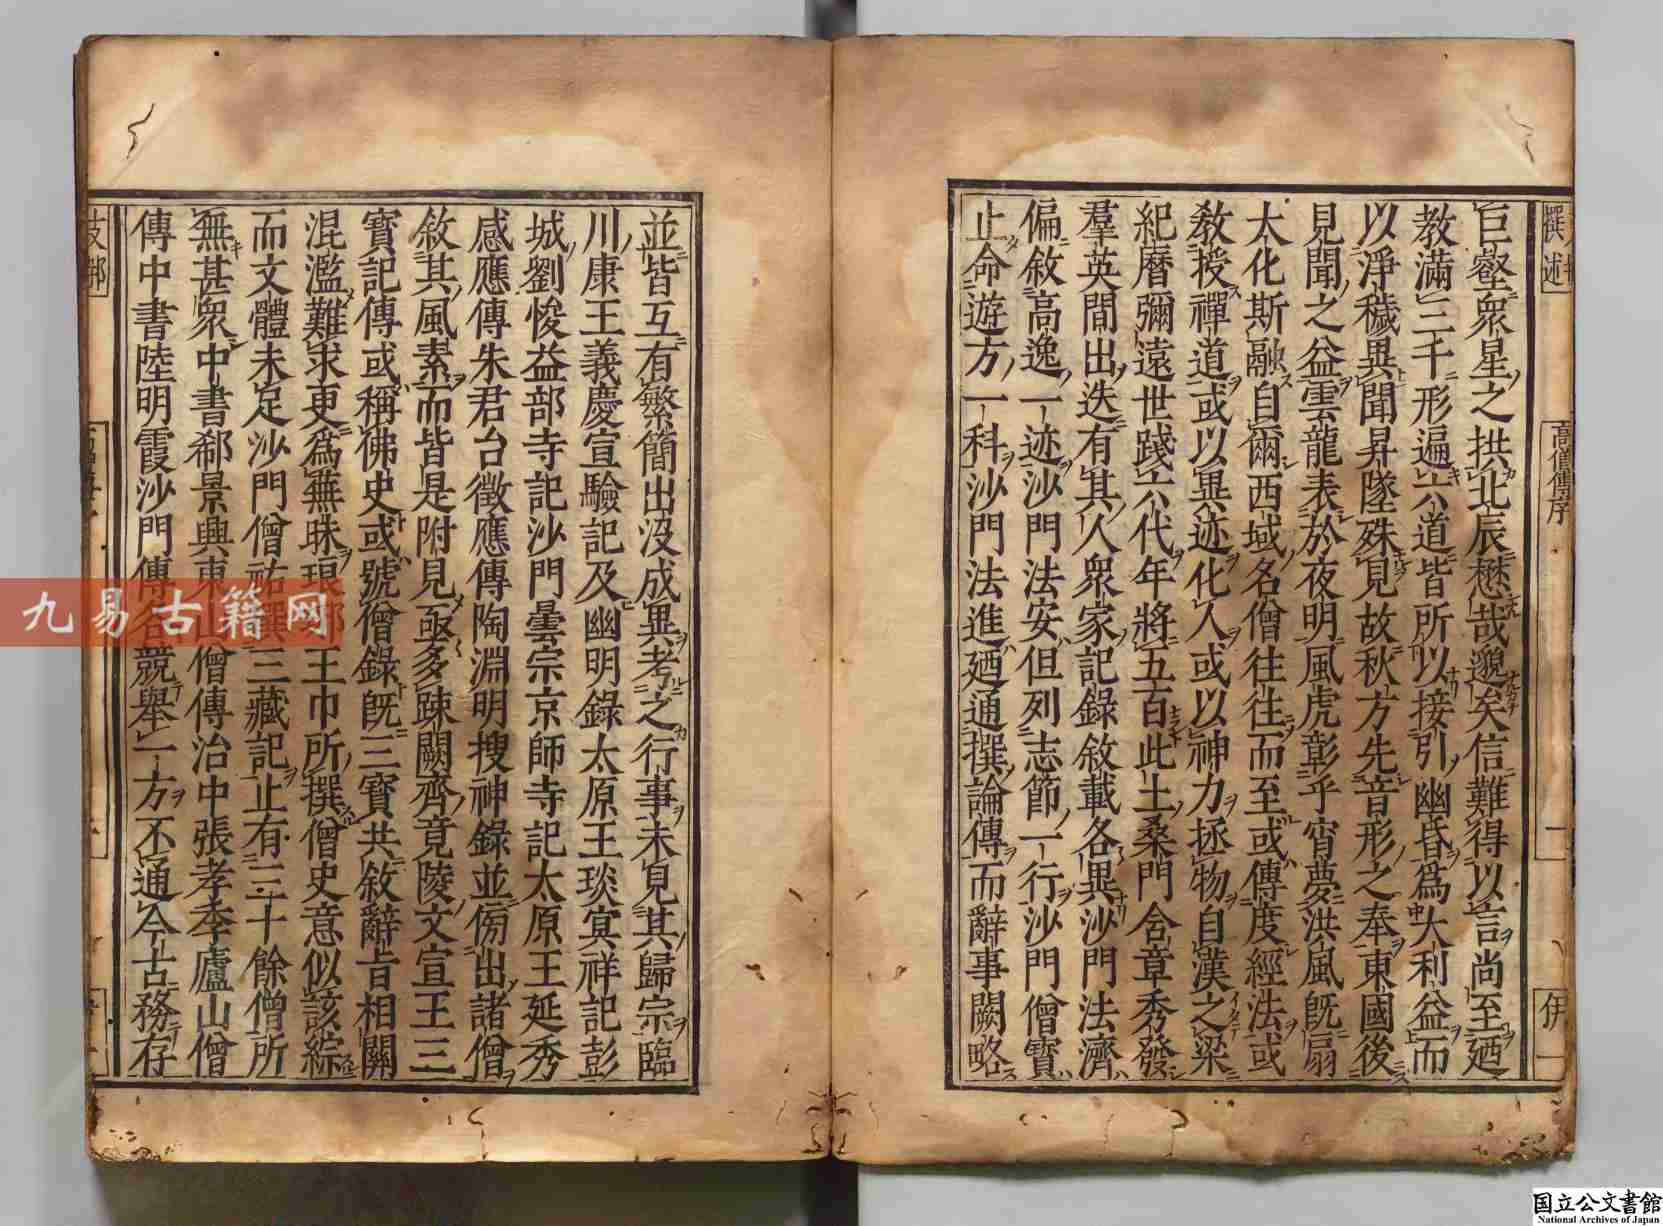 巨壑衆星之拱北辰懋哉邈矣信難得以言尚至廼
教滿三千形遍六道皆所以接引幽昏爲大利益而
以淨穢異聞昇墜殊見故秋方先音形之奉東國後
見聞之益雲龍表於夜明風虎彰乎宵夢洪風既扇
大化斯融自爾西域名僧往往而至或傳度經法或
教授禪道或以異迹化人或以神力拯物自漢之梁
紀曆彌遠世踐六代年將五百此土桑門含章秀發
羣英間出迭有其人衆家記錄敘載各異沙門法濟
偏敘高逸一迹沙門法安但列志節一行沙門僧寶
止命遊方一科沙門法進廼通撰論傳而辭事闕略
並皆互有繁簡出没成異考之行事未見其歸宗臨
川康王義慶宣驗記及幽明錄太原王琰冥祥記彭
城劉悛益部寺記沙門曇宗京師寺記太原王延秀
感應傳朱君台徵應傳陶淵明搜神錄並傍出諸僧
敘其風素而皆是附見亟多踈闕齊竟陵文宣王三
寶記傳或稱佛史或號僧錄既三寶共敘辭旨相關
混濫難求更爲蕪昧琅琊王巾所撰僧史意似該綜
而文體未足沙門僧祐撰三藏記止有三十餘僧所
無甚衆中書郗景興東山僧傳治中張孝季廬山僧
傳中書陸明霞沙門傳各競舉一方不通今古務存
撰述
高僧傳序
二
伊一
九易古籍网
国立公文書館
National Archives of Japan